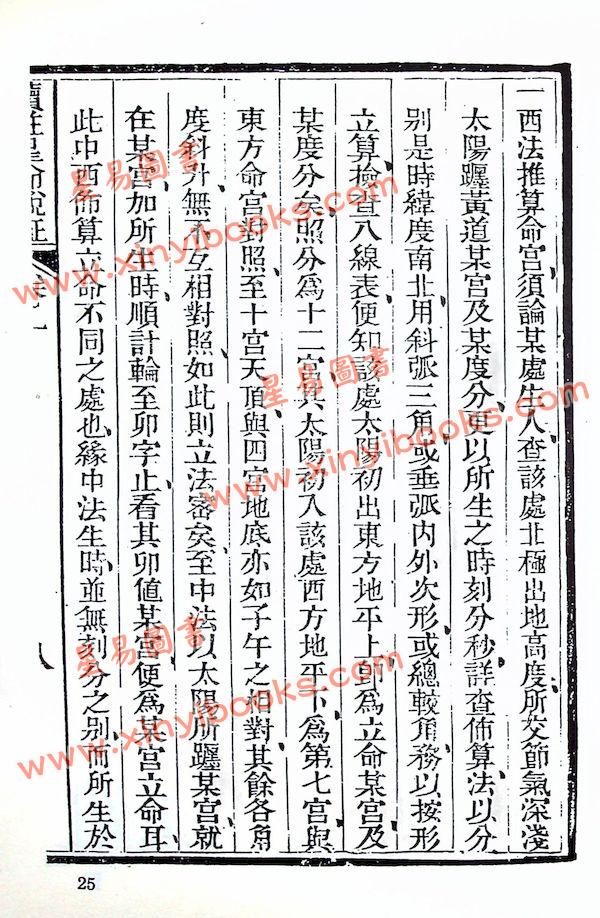 一西法推算命宮須論某處生人查該處北極出地高度所交節氣深淺
太陽躔黃道某宮及某度分更以所生之時刻分秒詳查佈算法以分
别是時緯度南北用斜弧三角或垂弧內外次形或總較角務以按形
立算撿查八線表便知該處太陽初出東方地平上卽為立命某宮及
某度分矣照分為十二宮與太陽初入該處西方地平下為第七宮與
東方命宮對照至十宮天頂與四宮地底亦如子午之相對其餘各角
度斜升無不互相對照如此則立法密矣至中法以太陽所躔某宮就
在某宮加所生時順計輪至卯字止看其卯值某宮便為某宮立命耳
此中西佈算立命不同之處也緣中法生時並無刻分之别而所生於
八
25
星易圖書
www.xinyibooks.com
星易圖書
www.xinyibooks.com
星易圖書
www.xinyibooks.com
星易圖書
www.xinyibooks.com